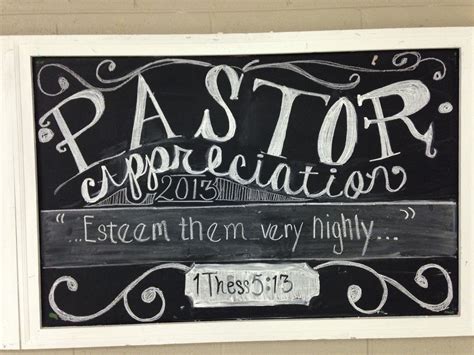 PASTOR
Appreciation
2013
"...Esteem them very highly..."
1 Thess 5:13